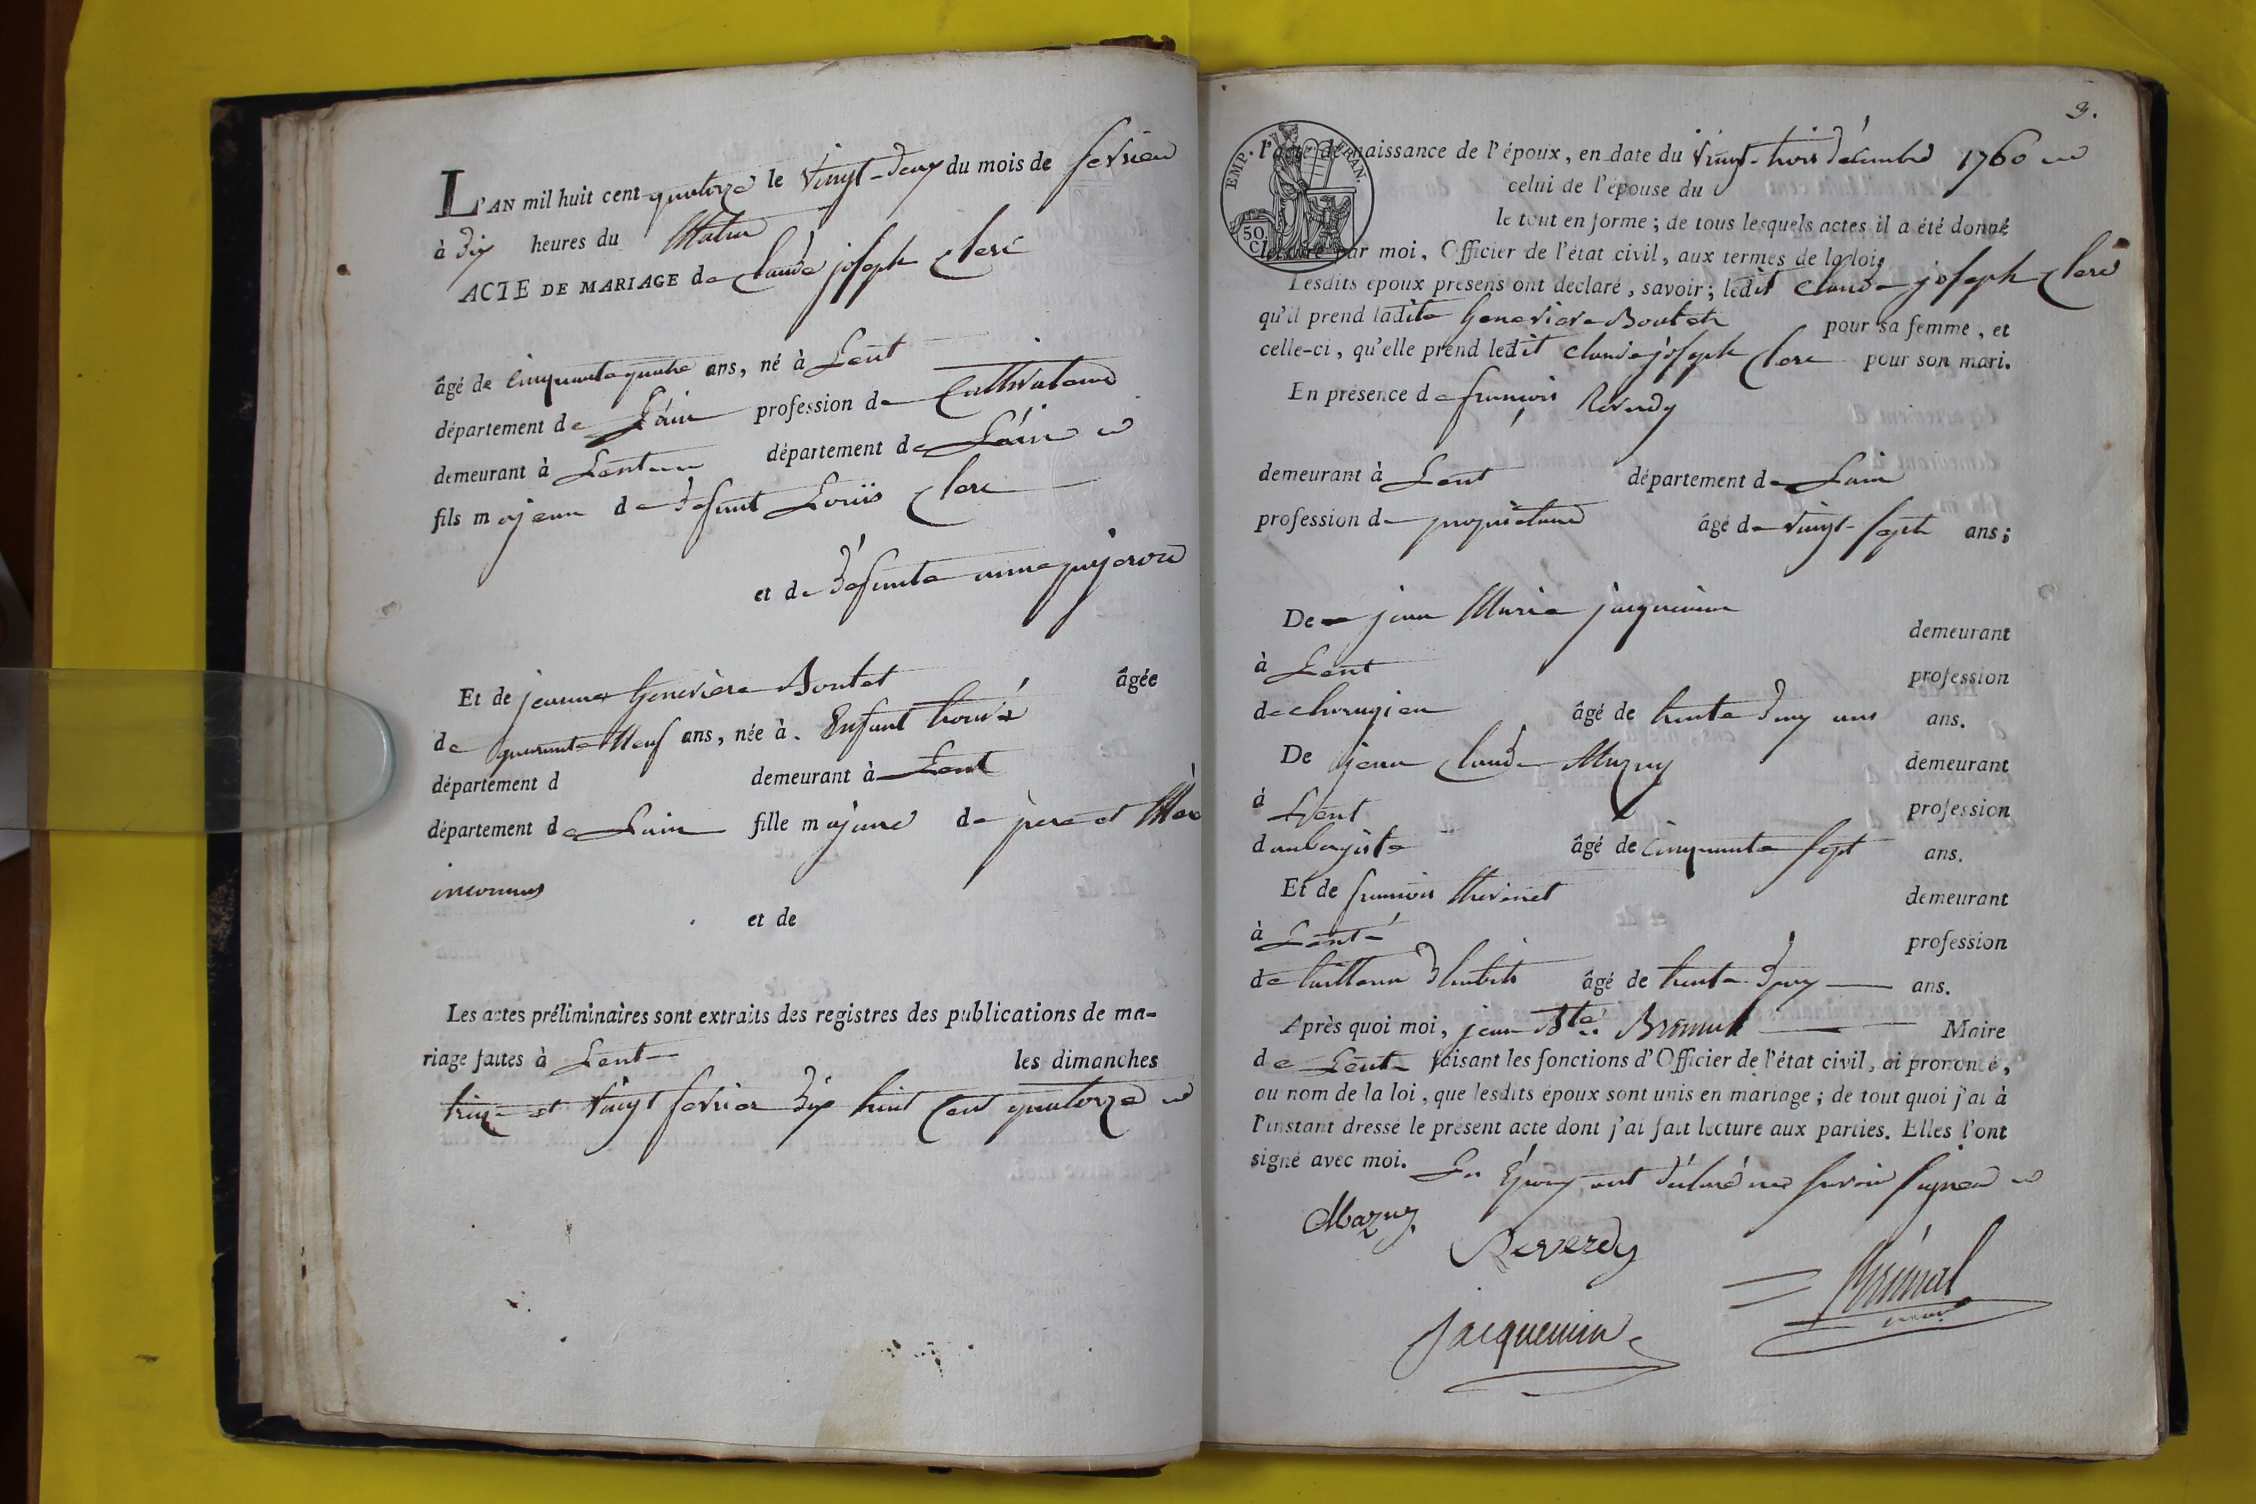 L'AN mil huit cent quatorze le vingt-deux du mois de fevrier
à dix heures du Matin
ACTE DE MARIAGE de Claude joseph Clerc
âgé de cinquante quatre ans, né à Lent
département de L'ain profession de Cultivateur
demeurant à Lent département de L'ain
fils majeur de defunt Louis Clerc
et de defunte anne
Et de jeanne Genevieve Boutet âgée
de quarante Neuf ans, née à. Enfant trouvé
département d demeurant à Lent
département de Lain fille majeure de père et Mère
inconnus
et de
Les actes préliminaires sont extraits des registres des publications de ma-
riage faites à Lent les dimanches
treize et vingt fevrier dix huit cent quatorze
3.
EMP. FRAN.
50.
C.
l'acte de naissance de l'époux, en date du vingt-trois décembre 1760
celui de l'épouse du
le tout en forme ; de tous lesquels actes il a été donné
lecture par moi, Officier de l'état civil, aux termes de la loi,
Lesdits époux présens ont déclaré, savoir ; ledit Claude joseph Clerc
qu'il prend ladite Genevieve Boutet pour sa femme, et
celle-ci, qu'elle prend ledit claude joseph Clerc pour son mari.
En présence de francois Reverdy
demeurant à Lent département de Lain
profession de propriétaire âgé de vingt-sept ans ;
De jean Marie jacquemin demeurant
à Lent profession
de chirurgien âgé de trente deux ans ans.
De jean Claude Mazuy demeurant
à Lent profession
d'aubergiste âgé de cinquante sept ans.
Et de francois thevenet demeurant
à Lent profession
de tailleur d'habits âgé de trente-deux ans.
Après quoi moi, jean Bte. Brunal Maire
de Lent faisant les fonctions d'Officier de l'état civil, ai prononcé,
au nom de la loi, que lesdits époux sont unis en mariage ; de tout quoi j'ai à
l'instant dressé le présent acte dont j'ai fait lecture aux parties. Elles l'ont
signé avec moi. Les Epoux ont déclaré ne savoir signer
Mazuy
Reverdy
Jacquemin